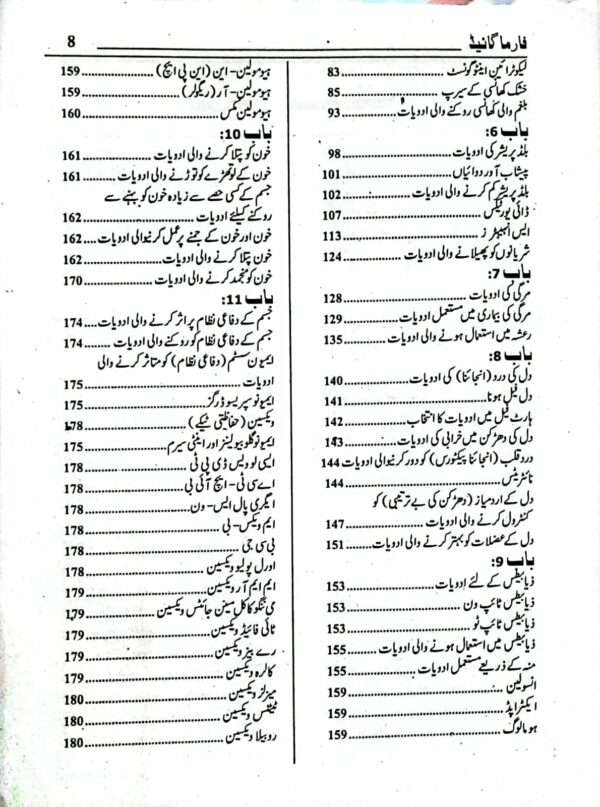 فارما گائیڈ 8
لیکوٹرائین اینٹوگونسٹ 83
خشک کھانسی کے سیرپ 85
بلغم والی کھانسی روکنے والی ادویات 93
باب 6:
بلڈ پریشر کی ادویات 98
پیشاب آور دوائیاں 101
بلڈ پریشر کم کرنے والی ادویات 102
ڈائی یورٹکس 107
ایس انہیبیٹرز 113
شریانوں کو پھیلانے والی ادویات 124
باب 7:
مرگی کی ادویات 128
مرگی کی بیماری میں مستعمل ادویات 129
رعشہ میں استعمال ہونے والی ادویات 135
باب 8:
دل کی درد (انجائنا) کی ادویات 140
دل فیل ہونا 141
ہارٹ فیل میں ادویات کا انتخاب 142
دل کی دھڑکن میں خرابی کی ادویات 143
درد قلب (انجائنا پیکٹورس) کو دور کرنیوالی ادویات 144
نائٹریٹس 144
دل کے اردمیاز (دھڑکن کی بے ترتیبی) کو
کنٹرول کرنے والی ادویات 147
دل کے عضلات کو بہتر کرنے والی ادویات 151
باب 9:
ذیابیطس کے لئے ادویات 153
ذیابیطس ٹائپ ون 153
ذیابیطس ٹائپ ٹو 153
ذیابیطس میں استعمال ہونے والی ادویات 155
منہ کے ذریعے مستعمل ادویات 155
انسولین 159
ایکٹراپڈ 159
ہومالوگ 159
ہیومولین-این (این پی ایچ) 159
ہیومولین-آر (ریگولر) 159
ہیومولین مکس 160
باب 10:
خون کو پتلا کرنے والی ادویات 161
خون کے لوتھڑے کو توڑنے والی ادویات 161
جسم کے کسی حصے سے زیادہ خون کو بہنے سے
روکنے کیلئے ادویات 162
خون اور خون کے جمنے پر عمل کرنیوالی ادویات 162
خون پتلا کرنے والی ادویات 162
خون کو منجمد کرنے والی ادویات 170
باب 11:
جسم کے دفاعی نظام پر اثر کرنے والی ادویات 174
جسم کے دفاعی نظام کو روکنے والی ادویات 174
ایمیون سسٹم (دفاعی نظام) کو متاثر کرنے والی
ادویات 175
ایمیونوسپریسو ڈرگز 175
ویکسین (حفاظتی ٹیکے) 178
ایمیونوگلوبیولینز اور اینٹی سیرم 175
ایسی لوویس ڈی پی ٹی 178
اے سی ٹی-ایچ آئی بی 178
ایگری پال ایس-ون 178
ایم ویکس-بی 178
بی سی جی 178
اورل پولیو ویکسین 178
ایم ایم آر ویکسین 179
می ننگوکاکل مینن جائٹس ویکسین 179
ٹائی فائیڈ ویکسین 179
رے بیز ویکسین 179
کالرہ ویکسین 179
میزلز ویکسین 180
ٹیٹنس ویکسین 180
روبیلا ویکسین 180